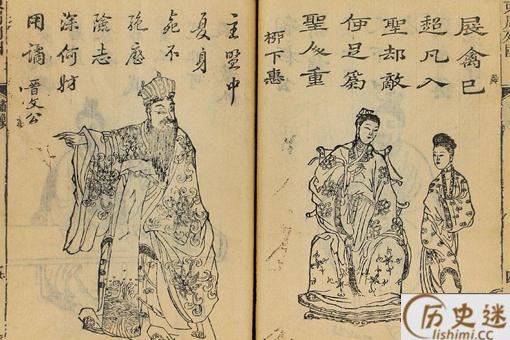 展禽已
超凡入
聖却敵
使足爲
聖人重
柳下惠
主盟中
夏身
死不
絶歷
險志
深何妨
用譎
晋文公
历史迷
lishimi.cc